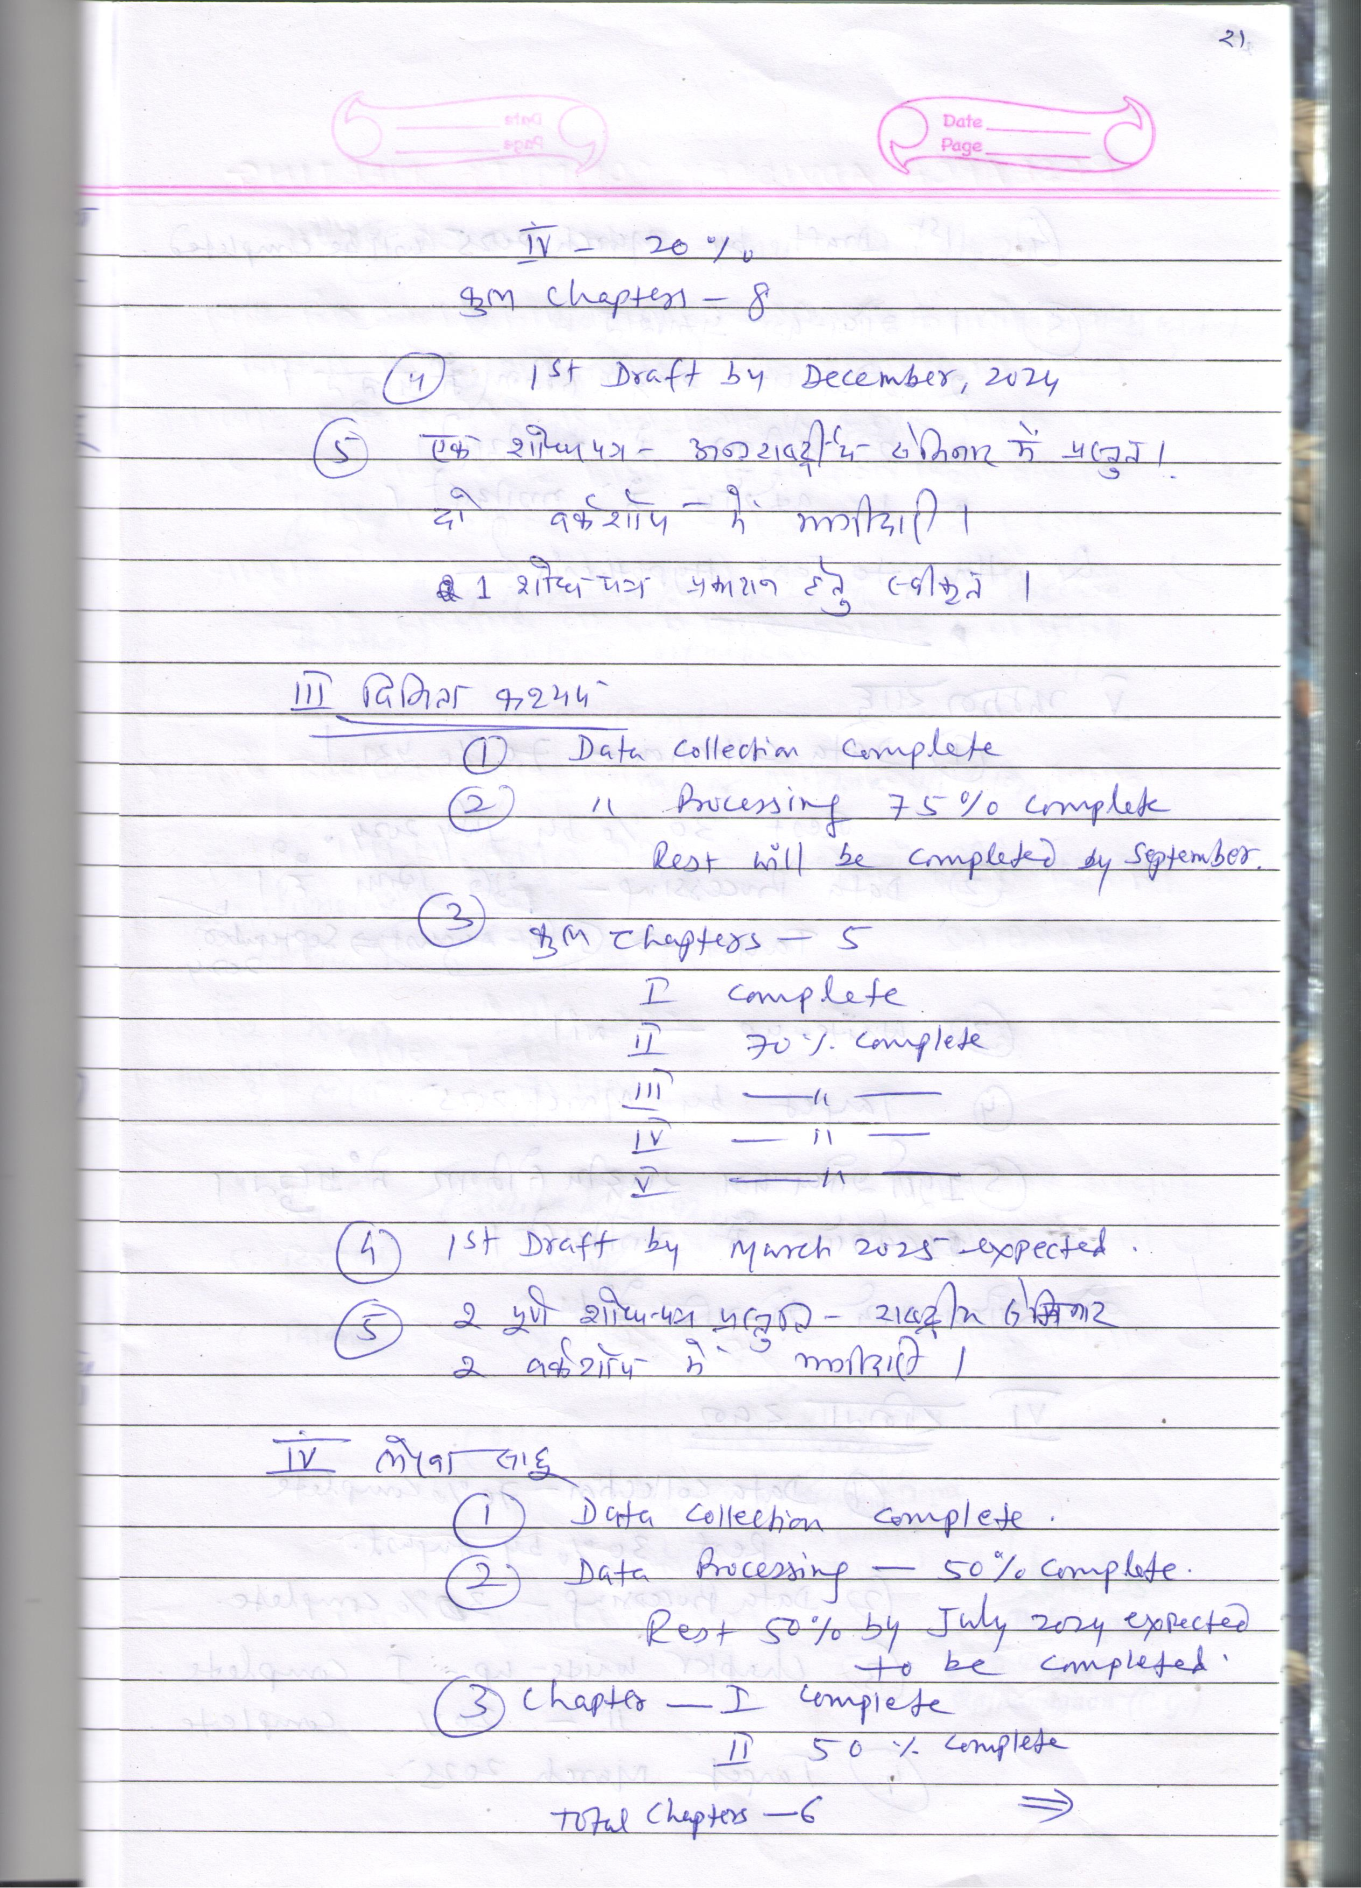 21
Date
Page
IV - 20 %
कुल Chapters - 8
(4) 1st Draft by December, 2024
(5) एक शोधपत्र - अन्तराष्ट्रीय सेमिनार में प्रस्तुत।
दो वर्कशॉप में भागीदारी।
1 शोध पत्र प्रकाशन हेतु स्वीकृत।
III विनिता कश्यप
(1) Data Collection Complete
(2) " Processing 75% complete
Rest will be completed by September.
(3) कुल Chapters - 5
I Complete
II 70 % Complete
III — " —
IV — " —
V — " —
(4) 1st Draft by March 2025 expected.
(5) 2 पूर्ण शोध-पत्र प्रस्तुति - राष्ट्रीय सेमिनार
2 वर्कशॉप में भागीदारी।
IV साहू
(1) Data Collection Complete.
(2) Data Processing — 50% Complete.
Rest 50% by July 2024 expected
to be completed.
(3) Chapter — I Complete
II 50 % Complete
Total Chapters - 6 ⇒